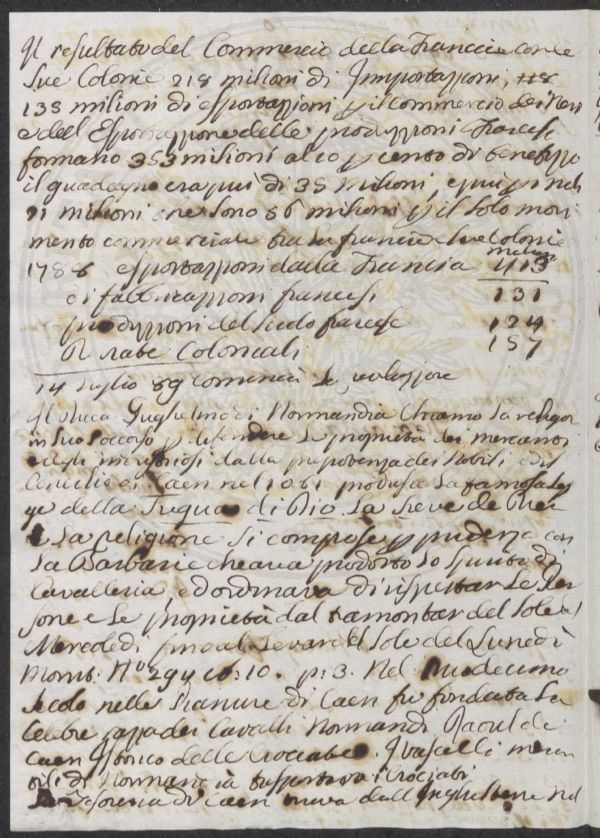 Il resultato del Commercio della Francia con le
Sue Colonie 218 milioni di Importazzioni,
138 milioni di esportazzioni il commercio dei
e dell Esportazzione delle produzzioni Francesi
formano 353 milioni al 10 p cento di benefizzo
il guadagno era piui di 35 milioni,
21 milioni che sono 56 milioni p il solo movi
mento commerciale tra la francia e le Sue Colonie
1788 esportazzioni dalla Francia 413
di fabbricazzioni francesi 131
produzzioni del suolo francese 124
Derrate Coloniali 157
14 luglio 89 comincia la
Il Duca Guglielmo di Normandia chiamò la religion
in suo soccorso p difendere le proprietà dei mercanti
e degli industriosi dalla prepotenza dei Nobili
Concilio di Caen nel 1061 produsse la famosa leg
ge della Tregua di Dio la Treve de Dieu
e la religione si compose p prudenza con
la Barbarie che avea prodotto lo spirito di
Cavalleria ed ordinava di rispettar le Per
sone e le proprietà dal tramontar del sole del
Mercoledi fino al levare del sole del Lunedì
Monit. No 294 10. p. 3. Nel
secolo nelle Pianure di Caen fu fondata la
celebre razza dei Cavalli Normandi Raoul de
Caen Istorico delle Crociate. I Vascelli mercan
tili di Normandia trasportava i Crociati
di Caen dall Inghilterra nel